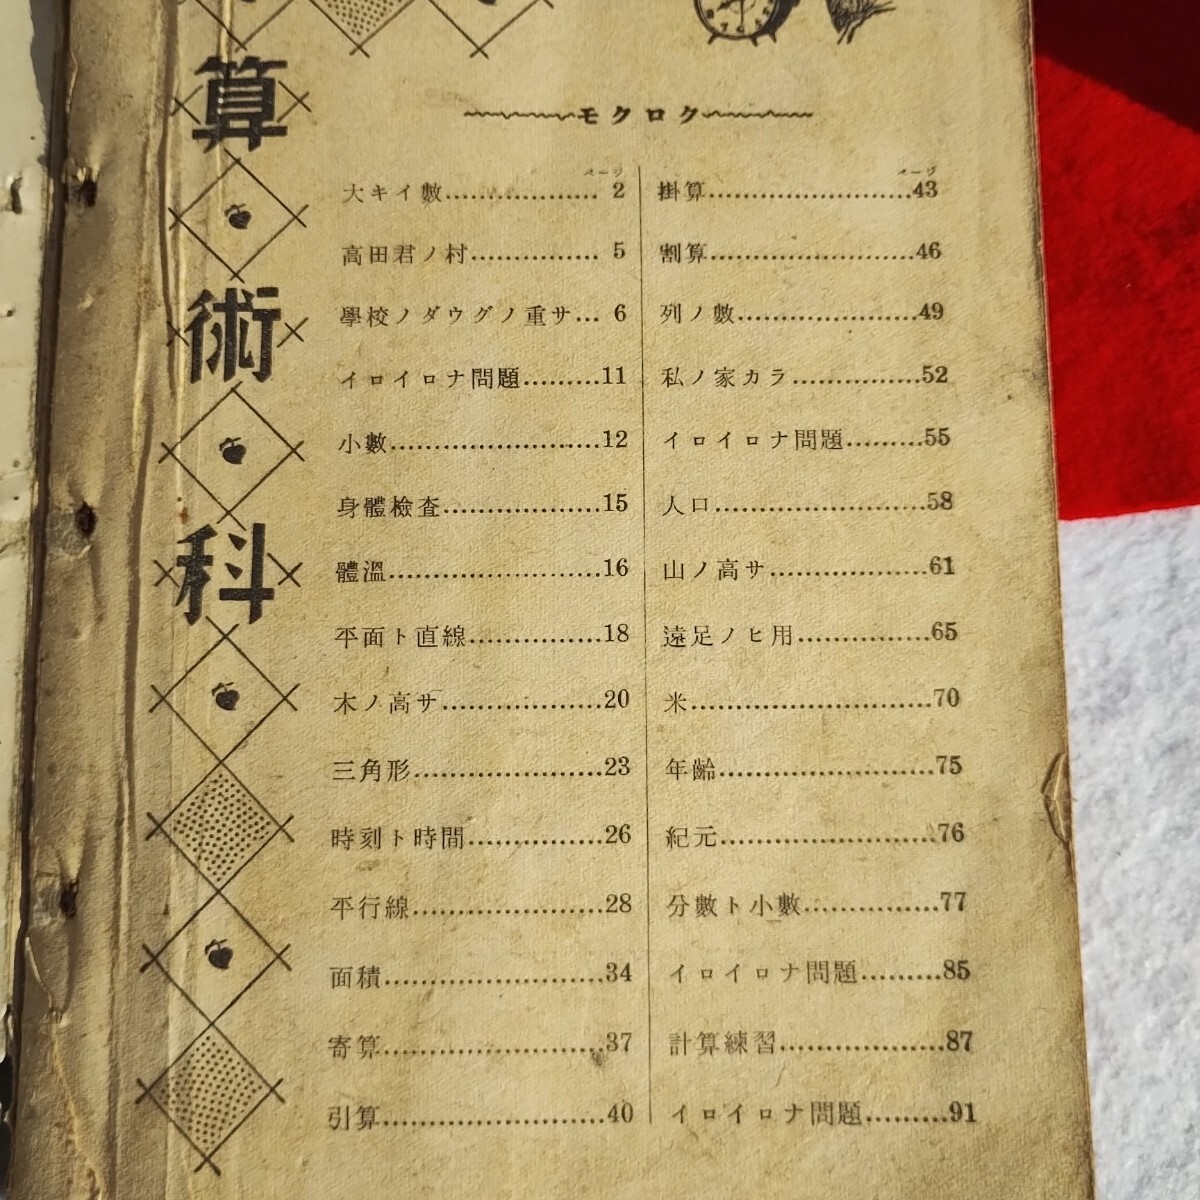 算術科
モクロク
ページ
大キイ數 2
高田君ノ村 5
學校ノダウグノ重サ 6
イロイロナ問題 11
小數 12
身體檢査 15
體溫 16
平面ト直線 18
木ノ高サ 20
三角形 23
時刻ト時間 26
平行線 28
面積 34
寄算 37
引算 40
ページ
掛算 43
割算 46
列ノ數 49
私ノ家カラ 52
イロイロナ問題 55
人口 58
山ノ高サ 61
遠足ノヒ用 65
米 70
年齡 75
紀元 76
分數ト小數 77
イロイロナ問題 85
計算練習 87
イロイロナ問題 91